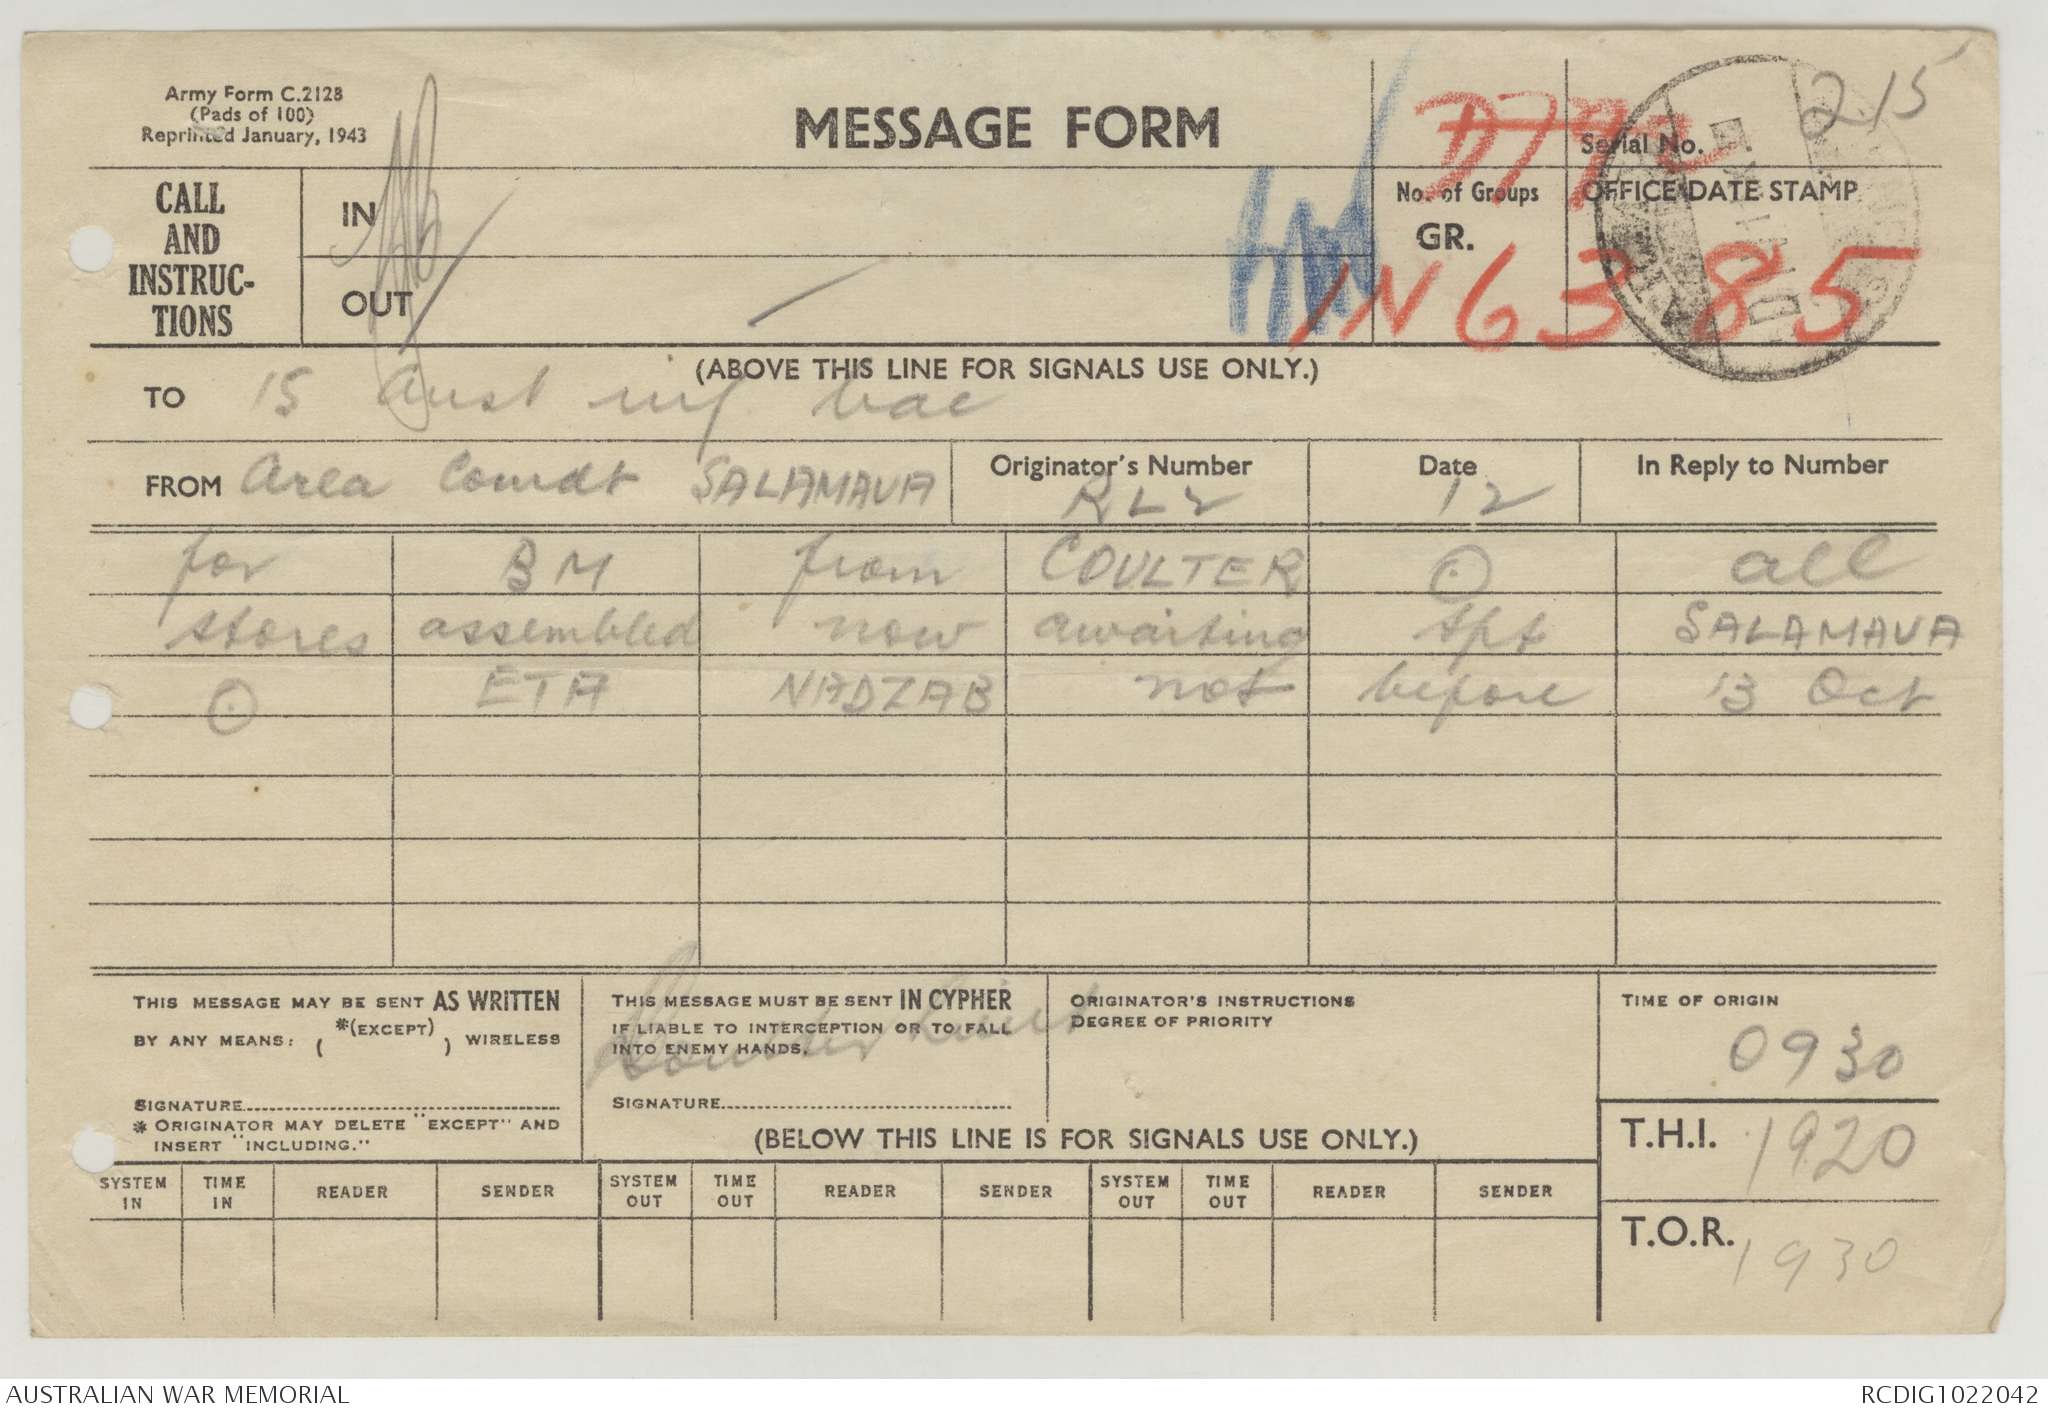 Army Form C.2128
(Pads of 100)
Reprinted January, 1943
MESSAGE FORM
Serial No.
215
CALL
AND
INSTRUC-
TIONS
IN
OUT
No. of Groups
GR.
OFFICE DATE STAMP
IN 6385
(ABOVE THIS LINE FOR SIGNALS USE ONLY.)
TO 15 Aust inf bde
FROM Area Comdt SALAMAUA
Originator's Number
RL2
Date
12
In Reply to Number
for BM from COULTER ⊙ all
stores assembled now awaiting tpt SALAMAUA
⊙ ETA NADZAB not before 13 Oct
THIS MESSAGE MAY BE SENT AS WRITTEN
BY ANY MEANS: ( *(EXCEPT) ) WIRELESS
SIGNATURE
* ORIGINATOR MAY DELETE "EXCEPT" AND
INSERT "INCLUDING."
THIS MESSAGE MUST BE SENT IN CYPHER
IF LIABLE TO INTERCEPTION OR TO FALL
INTO ENEMY HANDS.
SIGNATURE
ORIGINATOR'S INSTRUCTIONS
DEGREE OF PRIORITY
TIME OF ORIGIN
0930
(BELOW THIS LINE IS FOR SIGNALS USE ONLY.)
T.H.I. 1920
T.O.R. 1930
SYSTEM IN TIME IN READER SENDER SYSTEM OUT TIME OUT READER SENDER SYSTEM OUT TIME OUT READER SENDER
AUSTRALIAN WAR MEMORIAL
RCDIG1022042